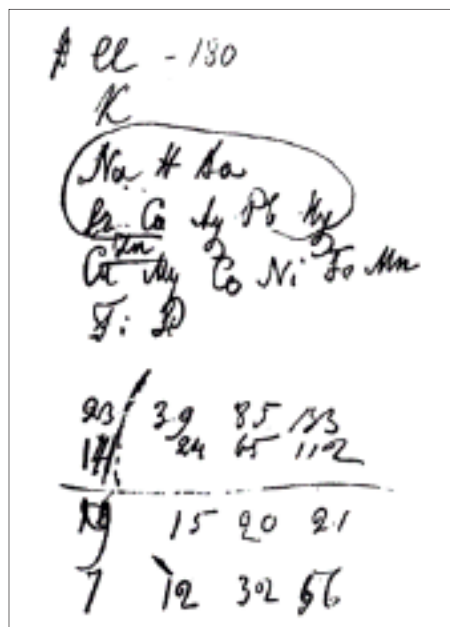 Cl - 180
K
Na H
Ca Ag Pb Hg
Zn
Cu Mg Co Ni Fe Mn
Ti
23 39 85 133
24 65 112
15 20 21
7 12 302 56